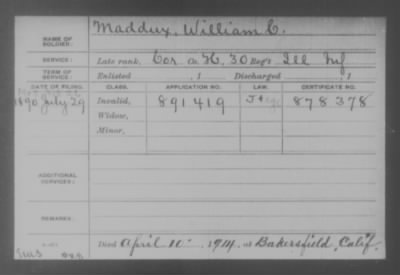 NAME OF SOLDIER: Maddux, William C.
SERVICE: Late rank, Cor. Co. H, 30 Reg't Ill Inf
TERM OF SERVICE: Enlisted , 1 Discharged , 1
DATE OF FILING. CLASS. APPLICATION NO. LAW. CERTIFICATE NO.
1890 July 29 Invalid, 891419 878378
Widow,
Minor,
ADDITIONAL SERVICES:
REMARKS:
Died April 10 1914, at Bakersfield, Calif.